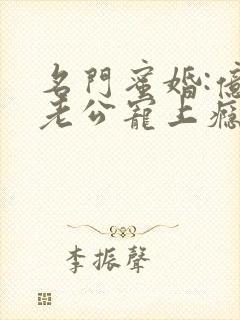 名門蜜婚:億
老公寵上癮
李振聲